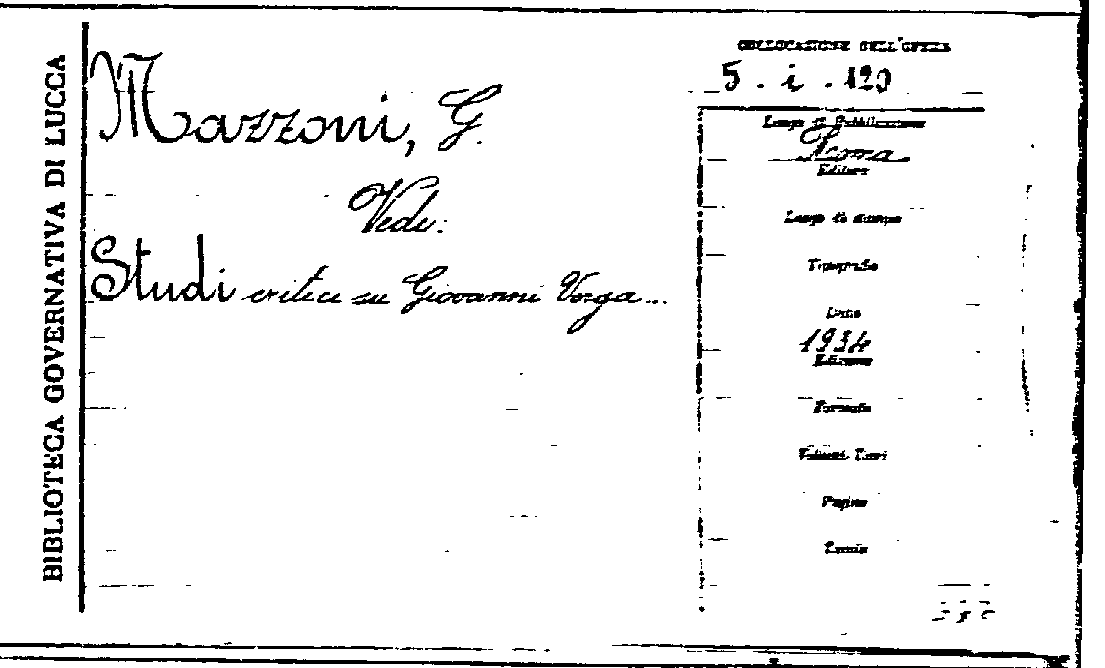 BIBLIOTECA GOVERNATIVA DI LUCCA
Mazzoni, G.
Vedi:
Studi critici su Giovanni Verga...
COLLOCAZIONE DELL'OPERA
5 . i . 120
Luogo di Pubblicazione
Roma
Editore
Luogo di stampa
Tipografia
Data
1934
Edizione
Formato
Volumi
Pagine